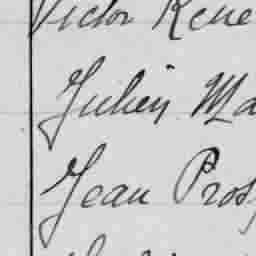 Victor Rene
Julien Ma
Jean Prosp